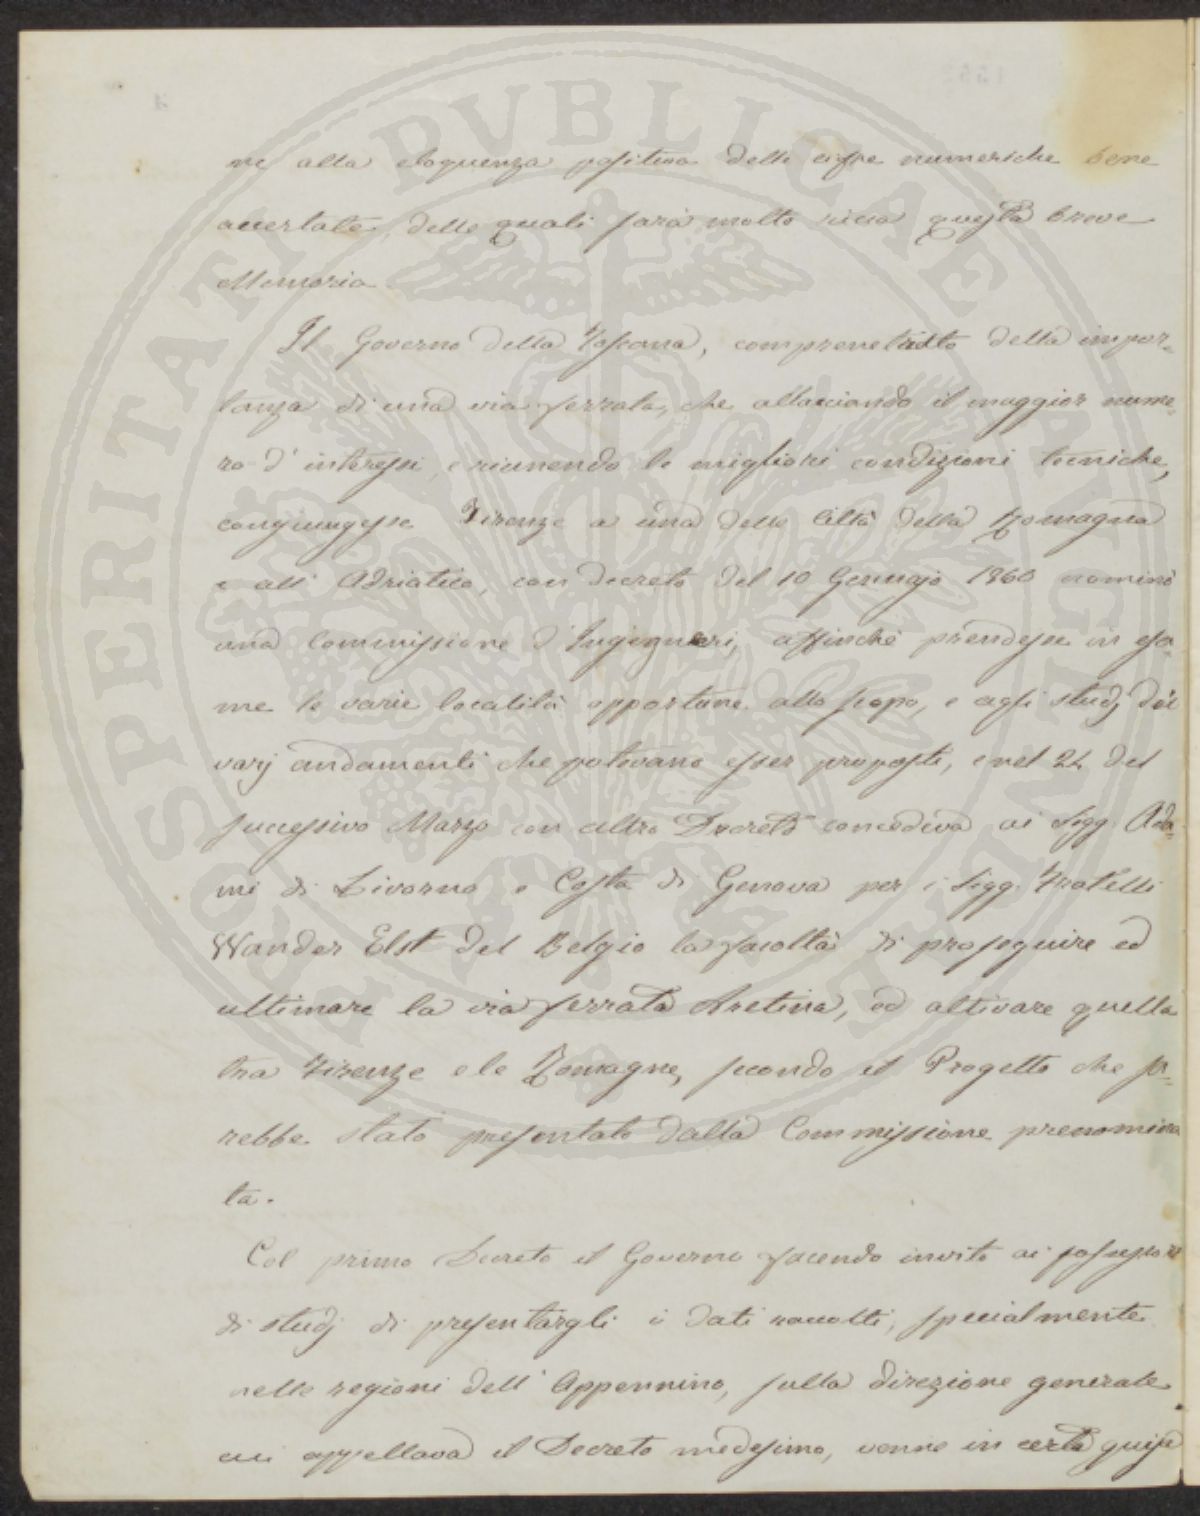 ne alla eloquenza positiva delle cifre numeriche bene
accertate, delle quali sarà molto ricca questa breve
Memoria
Il Governo della Toscana, compenetrato della impor-
tanza di una via ferrata, che allacciando il maggior nume-
ro d'interessi, e riunendo le migliori condizioni tecniche,
congiungesse Firenze a una delle Città della Romagna
e all' Adriatico, con decreto del 10 Gennajo 1860 nominò
una Commissione d'Ingegneri, affinchè prendesse in esa-
me le varie località opportune allo scopo, e agli studj dei
varj andamenti che potevano esser proposti, e nel 24 del
successivo Marzo con altro Decreto concedeva ai Sigg. Ada-
mi di Livorno e Costa di Genova per i Sigg. Fratelli
Wander Elst del Belgio la facoltà di proseguire ed
ultimare la via ferrata Aretina, ed attivare quella
tra Firenze e le Romagne, secondo il Progetto che sa-
rebbe stato presentato dalla Commissione prenomina
ta.
Col primo Decreto il Governo facendo invito ai possessori
di studj di presentargli i dati raccolti, specialmente
nelle regioni dell' Appennino, sulla direzione generale
cui appellava il Decreto medesimo, venne in certa guisa
PROSPERITATI PVBLICAE AVGENDAE